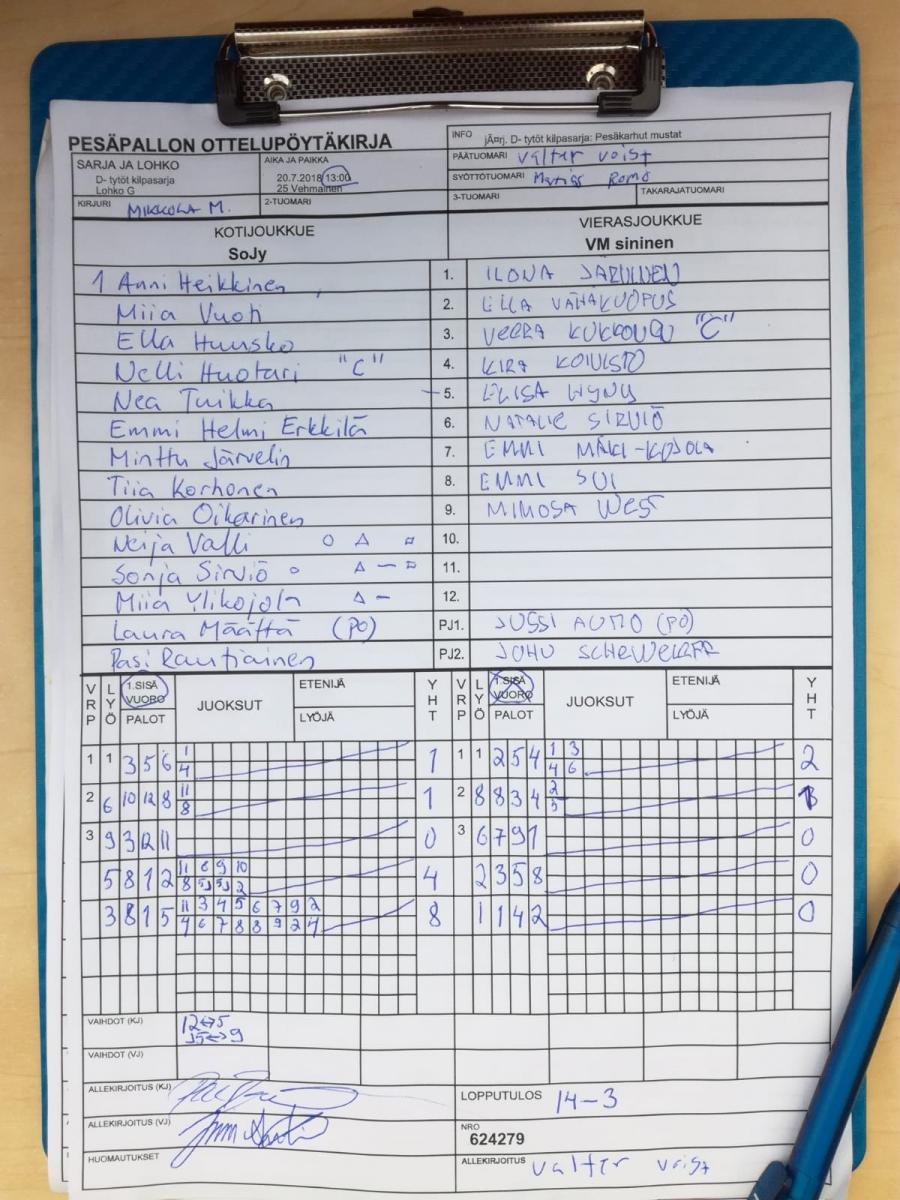 PESÄPALLON OTTELUPÖYTÄKIRJA
INFO jÃ¤rj. D- tytöt kilpasarja: Pesäkarhut mustat
PÄÄTUOMARI valter voist
SYÖTTÖTUOMARI
3-TUOMARI TAKARAJATUOMARI
SARJA JA LOHKO
D- tytöt kilpasarja
Lohko G
AIKA JA PAIKKA
20.7.2018 13:00
25 Vehmainen
KIRJURI MIKKOLA M. 2-TUOMARI
KOTIJOUKKUE VIERASJOUKKUE
SoJy VM sininen
1 Anni Heikkinen 1. ILONA JÄRVINEN
Miia Vuoti 2. ELLA VÄHÄKUOPUS
Ella Huusko 3. VEERA "C"
Nelli Huotari "C" 4. KIRA KOIVISTO
Nea Tuikka 5. ELISA
Emmi Helmi Erkkilä 6. NATALIE SIRVIÖ
Minttu Järvelin 7. EMMI MÄKI-KOJOLA
Tiia Korhonen 8. EMMI SUI
Olivia Oikarinen 9. MIMOSA WEST
Neija Valli 10.
Sonja Sirviö 11.
Miia Ylikojola 12.
Laura Määttä (PO) PJ1. JUSSI AUMO (PO)
Pasi Rautiainen PJ2. JUHU
VRP LYÖ 1.SISÄ VUORO PALOT JUOKSUT ETENIJÄ LYÖJÄ YHT VRP LYÖ 1.SISÄ VUORO PALOT JUOKSUT ETENIJÄ LYÖJÄ YHT
1 1 3 5 6 1 4 1 1 1 2 5 4 1 3 4 6 2
2 6 10 12 8 11 8 1 2 8 8 3 4 2 3 1
3 9 3 12 11 0 3 6 7 9 1 0
5 8 1 2 11 6 9 10 8 4 2 3 5 8 0
3 8 1 5 11 3 4 5 6 7 9 2 4 6 7 8 8 9 2 4 8 1 1 4 2 0
VAIHDOT (KJ) 12↔5
35↔9
VAIHDOT (VJ)
ALLEKIRJOITUS (KJ) LOPPUTULOS 14-3
ALLEKIRJOITUS (VJ) NRO
624279
HUOMAUTUKSET ALLEKIRJOITUS valter voist